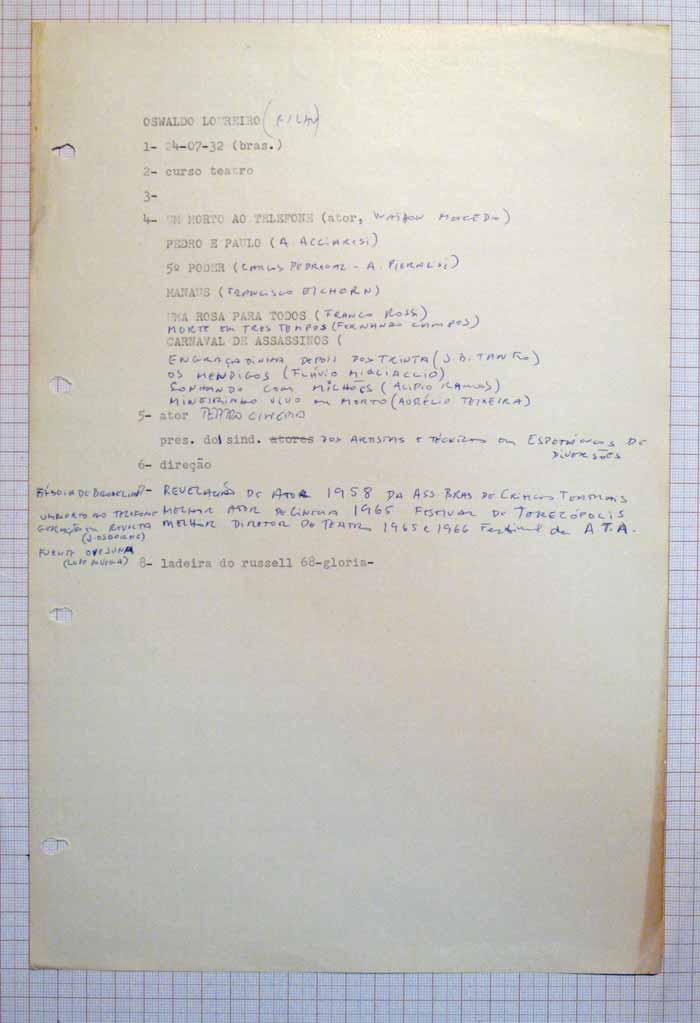 OSWALDO LOUREIRO (FILHO)
1- 24-07-32 (bras.)
2- curso teatro
3-
4- UM MORTO AO TELEFONE (ator, WATSON MACEDO)
PEDRO E PAULO (A. ACCIARESI)
5º PODER (CARLOS PEDREGAL - A. PIERALISI)
MANAUS (FRANCISCO EICHORN)
UMA ROSA PARA TODOS (FRANCO ROSSI)
MORTE EM TRES TEMPOS (FERNANDO CAMPOS)
CARNAVAL DE ASSASSINOS (
ENGRAÇADINHA DEPOIS DOS TRINTA (J.B. TANKO)
OS MENDIGOS (FLÁVIO MIGLIACCIO)
SONHANDO COM MILHÕES (ALIPIO RAMOS)
MINEIRINHO VIVO OU MORTO (AURÉLIO TEIXEIRA)
5- ator TEATRO CINEMA
pres. do sind. atores DOS ARTISTAS E TÉCNICOS EM ESPETÁCULOS DE
DIVERSÕES
6- direção
7- REVELAÇÃO DE ATOR 1958 DA ASS. BRAS. DE CRITICOS TEATRAIS
UM MORTO AO TELEFONE MELHOR ATOR DE CINEMA 1965 FESTIVAL DE TEREZÓPOLIS
GERAÇÃO EM REVOLTA MELHOR DIRETOR DE TEATRO 1965 e 1966 Festival da A.T.A.
(J. OSBORNE)
FUENTE OVEJUNA
(LOPE DE VEGA)
8- ladeira do russell 68-gloria-